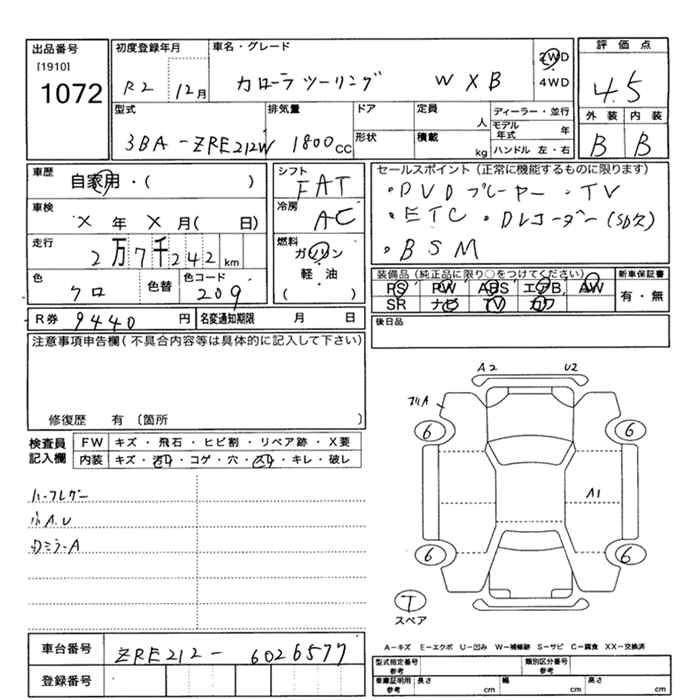 出品番号
[1910]
1072
初度登録年月
R2 12月
車名・グレード
カローラツーリング W×B
2WD
4WD
評価点
4.5
外装 内装
B B
型式
3BA-ZRE212W
排気量
1800cc
ドア
形状
定員
人
積載
kg
ディーラー・並行
モデル年式 年
ハンドル 左・右
車歴
自家用・( )
車検
× 年 × 月( 日)
走行
2万7千242km
色
クロ
色替
色コード
209
シフト
FAT
冷房
AC
燃料
ガソリン
軽油
( )
セールスポイント(正常に機能するものに限ります)
・DVDプレーヤー ・TV
・ETC ・Dレコーダー(SD欠)
・BSM
装備品(純正品に限り○をつけてください)
PS PW ABS エアB AW
SR ナビ TV カワ
新車保証書
有・無
R券 9440円
名変通知期限 月 日
後日品
注意事項申告欄(不具合内容等は具体的に記入して下さい)
修復歴 有 〔箇所 〕
検査員記入欄
FW キズ・飛石・ヒビ割・リペア跡・X要
内装 キズ・汚れ・コゲ・穴・スレ・キレ・破レ
小A、U
A2 U2
フリA
6 6
A1
6 6
T
スペア
A-キズ E-エクボ U-凹み W-補修跡 S-サビ C-腐食 XX-交換済
車台番号
ZRE212-6026577
登録番号
型式指定番号 参考
類別区分番号 参考
車庫証明用 参考
長さ cm
幅 cm
高さ cm